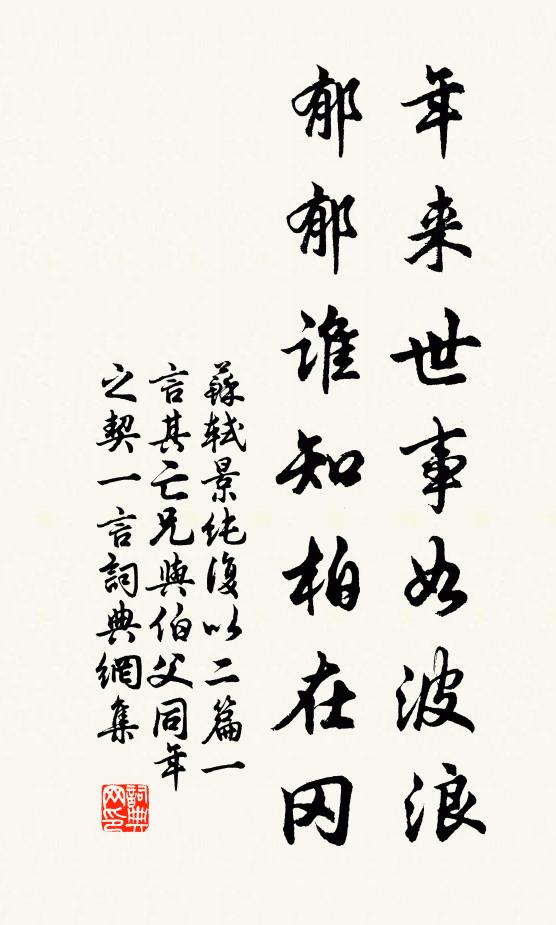 年来世事如波浪
郁郁谁知柏在冈
蘇軾景纯復以二篇一
言其亡兄與伯父同年
之契一言詞典網集
詞典
网印